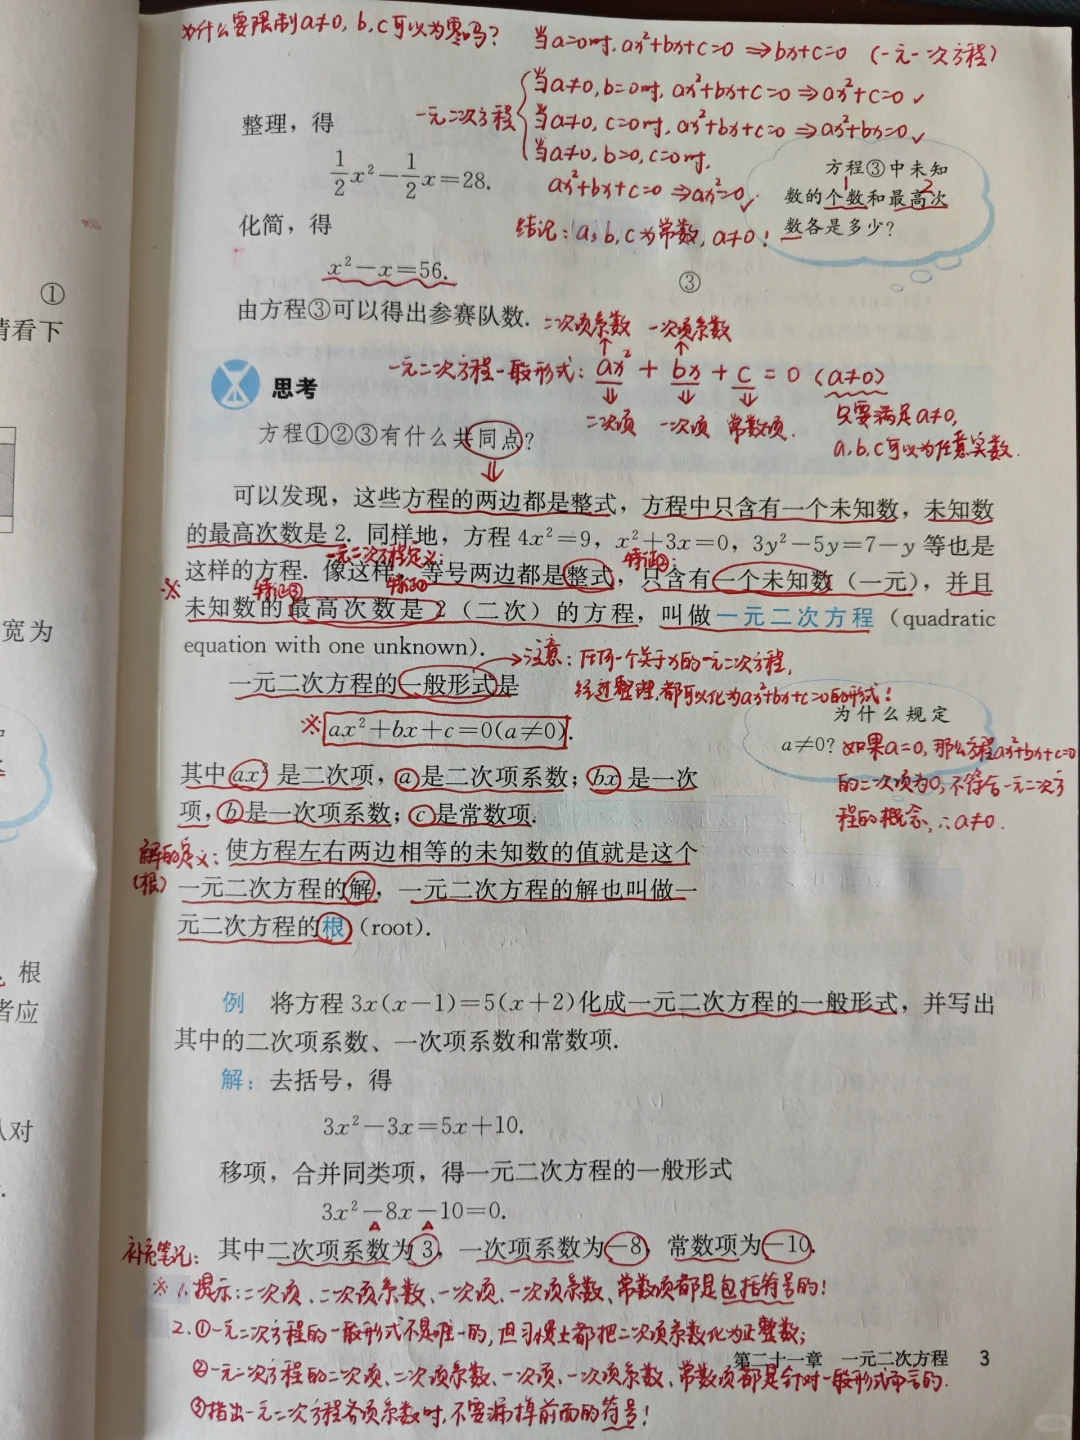 为什么要限制a≠0, b,c可以为零吗?
当a=0时, ax²+bx+c=0 ⇒bx+c=0 (一元一次方程)
当a≠0, b=0时, ax²+bx+c=0 ⇒ax²+c=0 ✓
一元二次方程
当a≠0, c=0时, ax²+bx+c=0 ⇒ax²+bx=0 ✓
当a≠0, b=0, c=0时,
ax²+bx+c=0 ⇒ax²=0 ✓
结论: a,b,c为常数, a≠0!
整理，得
1/2x²－1/2x=28.
方程③中未知
数的个数和最高次
数各是多少?
1
2
化简，得
x²－x=56.
③
①
请看下
由方程③可以得出参赛队数.
二次项系数 一次项系数
一元二次方程一般形式: ax² + bx + c = 0 (a≠0)
二次项 一次项 常数项.
只要满足a≠0,
a,b,c可以为任意实数.
思考
方程①②③有什么共同点?
可以发现，这些方程的两边都是整式，方程中只含有一个未知数，未知数
的最高次数是 2. 同样地，方程 4x²=9，x²+3x=0，3y²－5y=7－y 等也是
一元二次方程定义:
特征②:
这样的方程. 像这样，等号两边都是整式，只含有一个未知数（一元），并且
※
特征③
特征①
未知数的最高次数是 2（二次）的方程，叫做一元二次方程（quadratic
equation with one unknown).
注意: 任何一个关于x的一元二次方程,
经过整理,都可以化为ax²+bx+c=0的形式!
一元二次方程的一般形式是
※ ax²+bx+c=0(a≠0).
为什么规定
a≠0?
如果a=0, 那么方程ax²+bx+c=0
的二次项为0,不符合一元二次方
程的概念, ∴a≠0.
其中 ax² 是二次项，a 是二次项系数；bx 是一次
项，b 是一次项系数；c 是常数项.
解的定义:
(根)
使方程左右两边相等的未知数的值就是这个
一元二次方程的解，一元二次方程的解也叫做一
元二次方程的根(root).
宽为
根
者应
队对
例 将方程 3x(x－1)=5(x+2)化成一元二次方程的一般形式，并写出
其中的二次项系数、一次项系数和常数项.
解：去括号，得
3x²－3x=5x+10.
移项，合并同类项，得一元二次方程的一般形式
3x²－8x－10=0.
其中二次项系数为 3，一次项系数为－8，常数项为－10.
补充笔记:
※ 1.提示:二次项、二次项系数、一次项、一次项系数、常数项都是包括符号的!
2.①一元二次方程的一般形式不是唯一的,但习惯上都把二次项系数化为正整数;
第二十一章 一元二次方程 3
②一元二次方程的二次项、二次项系数、一次项、一次项系数、常数项都是针对一般形式而言的.
③指出一元二次方程各项系数时,不要漏掉前面的符号!